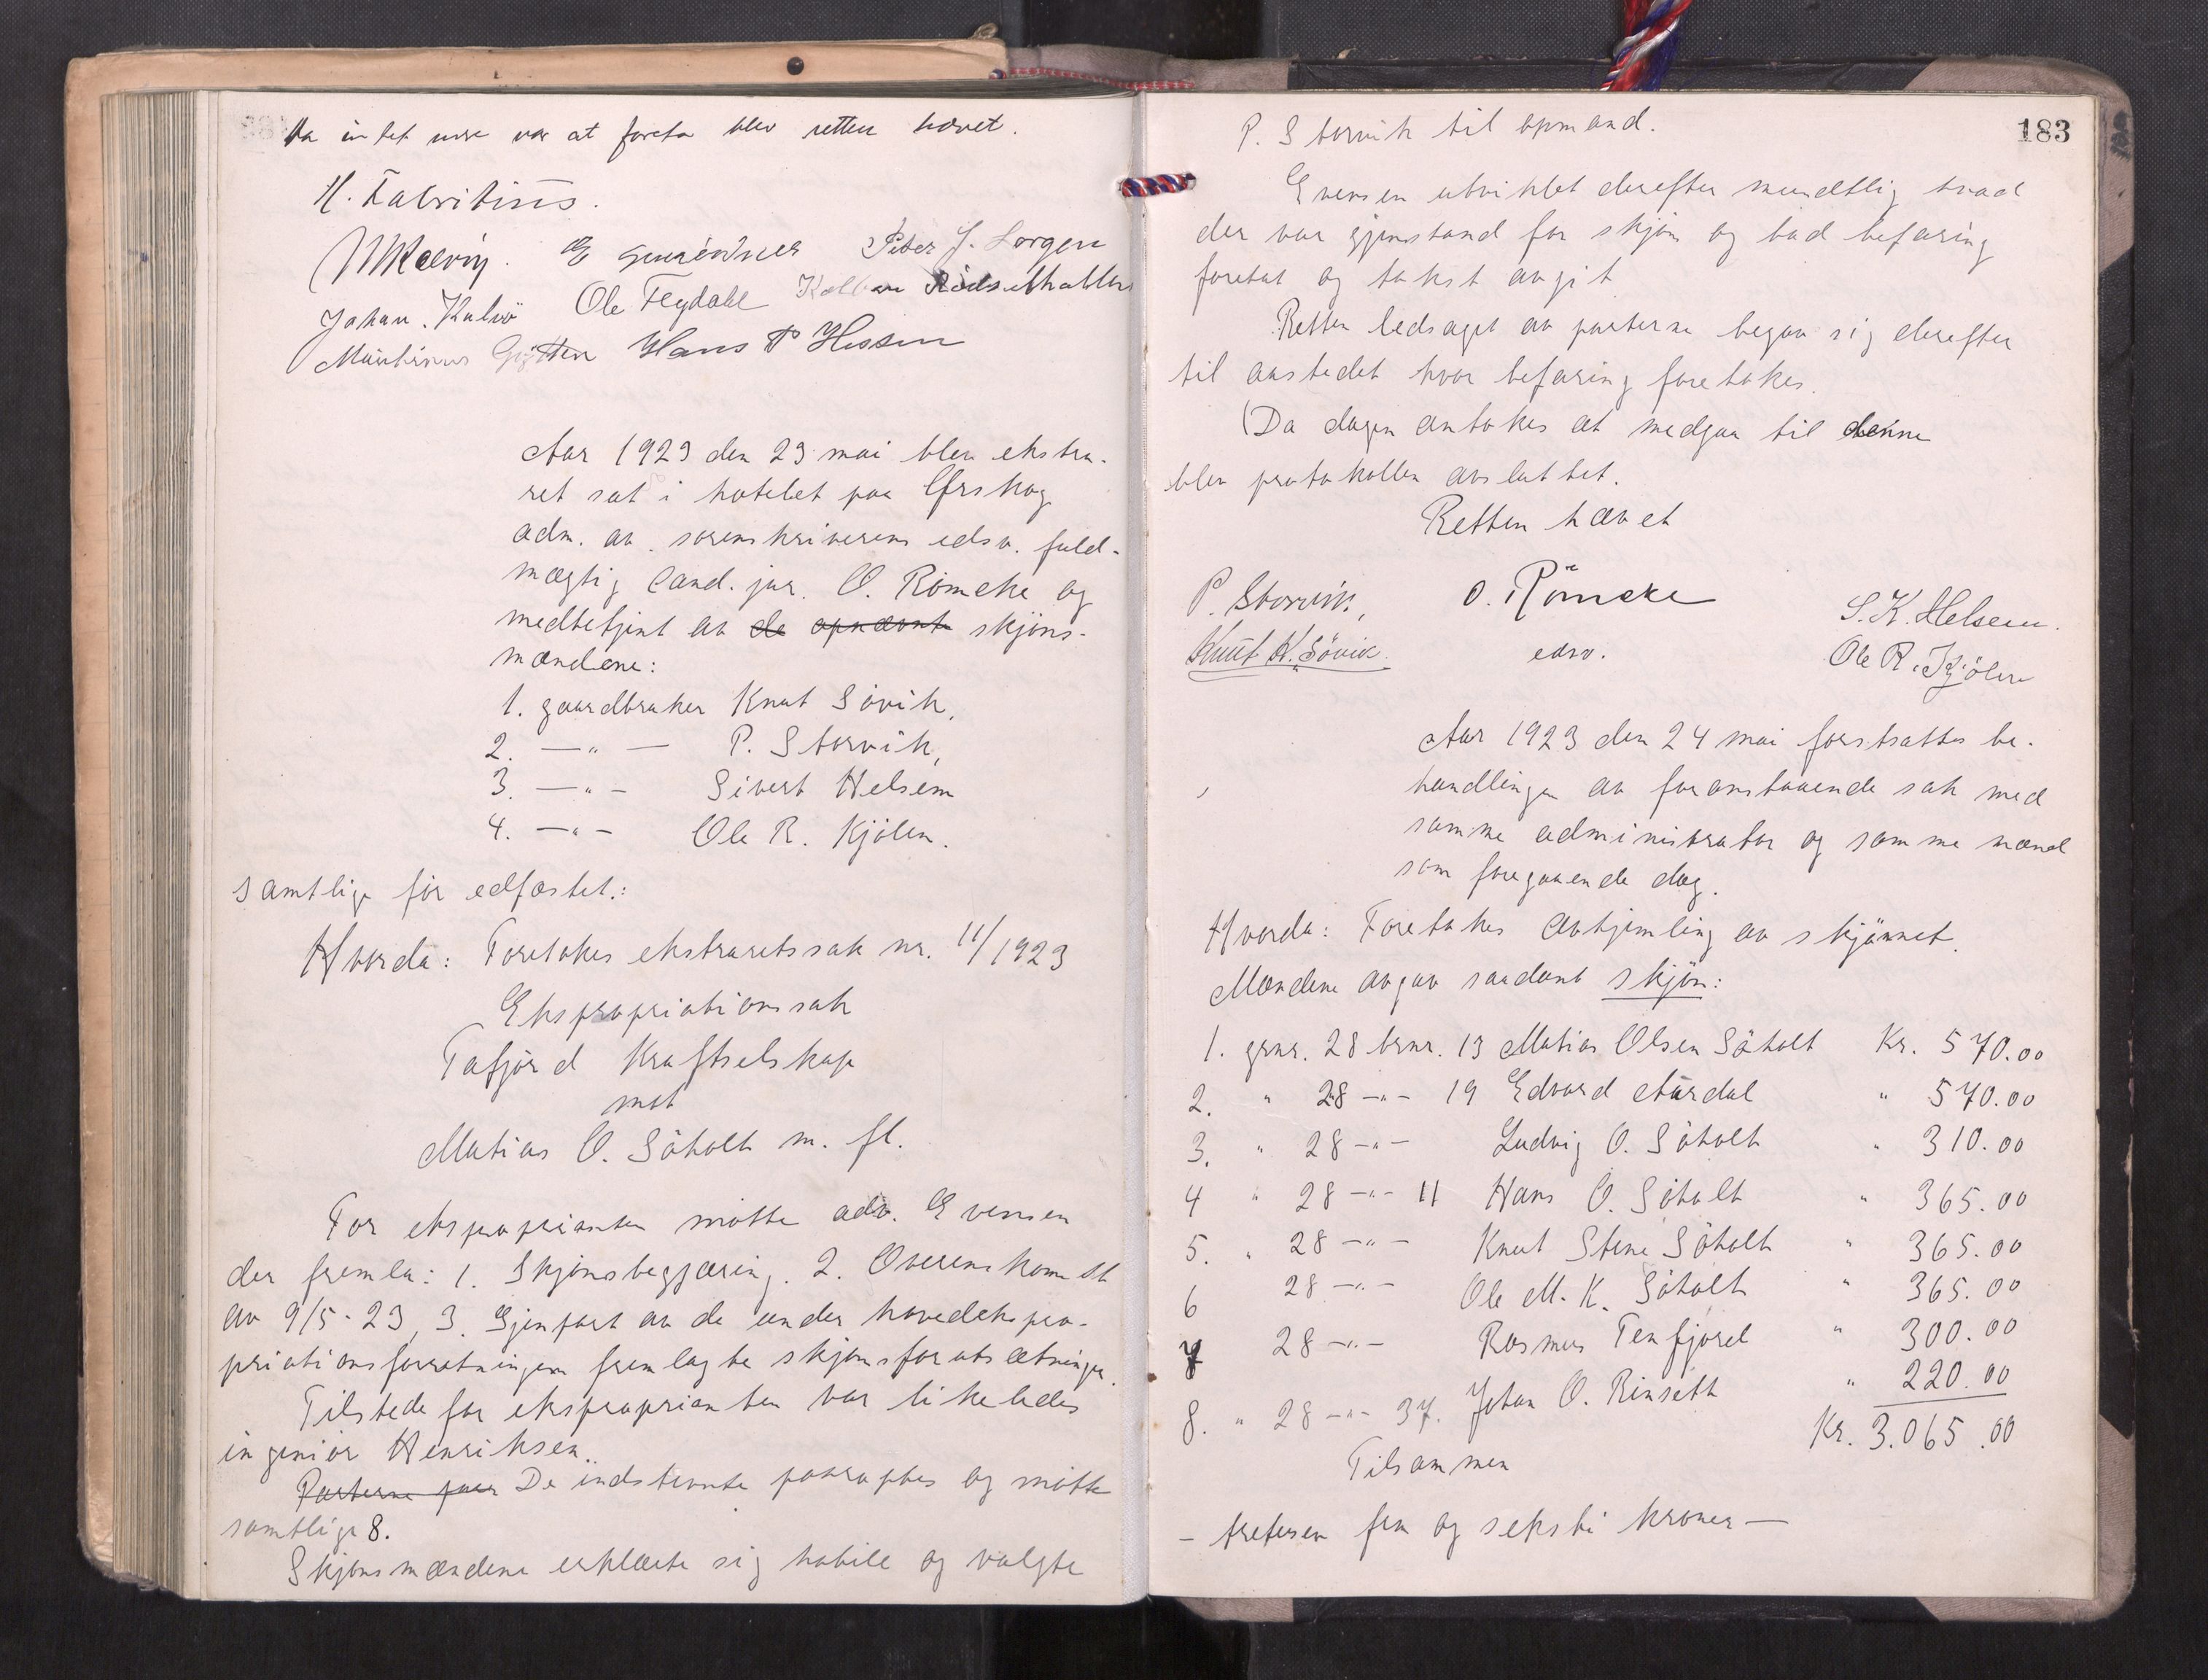 Da intet mere var at foreta blev retten hævet.
H. Fabritius.
Peter J. Lorgen
Johan. Kalvö Ole Flydahl
Martinus Hans P Hessen
Aar 1923 den 23 mai blev ekstra-
ret sat i hotelet paa Ørskog
adm. av sorenskriverens edsv. fuld-
mægtig Cand. jur. O. Römcke og
medbetjent av de opnævnte skjöns-
mændene:
1. gaardbruker Knut Sövik,
2. —"— P. Storvik,
3. —"- Sivert Helsem
4. —"- Ole R. Kjölen.
samtlige för edfæstet.:
Hvorda: Foretokes ekstraretssak nr. 11/1923
Ekspropriationssak
Tafjord Kraftselskap
mot
Matias O. Söholt m. fl.
For eksproprianten mötte adv. Evensen
der fremla: 1. Skjönsbegjæring. 2. Overenskomst
av 9/5-23, 3. Gjenpart av de under hovedekspro-
priationsforretningen fremlagte skjönsforutsætninger.
Tilstede for eksproprianten var likeledes
ingeniör Henriksen.
Parterne paa De indstevnte paaroptes og mötte
samtlige 8.
Skjönsmændene erklærte sig habile og valgte
183
P. Storvik til opmand.
Evensen utviklet derefter mundtlig hvad
der var gjenstand for skjön og bad befaring
foretat og takst avgit
Retten ledsaget av parterne begav sig derefter
til aastedet hvor befaring foretokes.
(Da dagen antokes at medgaa til denne
blev protokollen avsluttet.
Retten hævet
P. Storvik, O. Römcke S. K. Helsem.
Knut H. Sövik. edsv. Ole R. Kjölen
Aar 1923 den 24 mai forstsattes be-
handlingen av foranstaaende sak med
samme administrator og samme mænd
som foregaaende dag.
Hvorda: Foretokes avhjemling av skjönnet.
Mændene avgav saadant skjön:
1. grnr. 28 brnr. 13 Matias Olsen Söholt Kr. 570.00
2. " 28 -"- 19 Edvard Aurdal " 570.00
3. " 28 -"- Ludvig O. Söholt " 310.00
4 " 28 -"- 11 Hans O. Söholt " 365.00
5. " 28 -"- Knut Stene Söholt " 365.00
6 28 -"- Ole M. K. Söholt " 365.00
7 28 -"- Rasmus Tenfjord " 300.00
8. " 28 -"- 37. Johan O. Rinseth " 220.00
Tilsammen Kr. 3.065.00
- tretusen fem og seksti kroner —